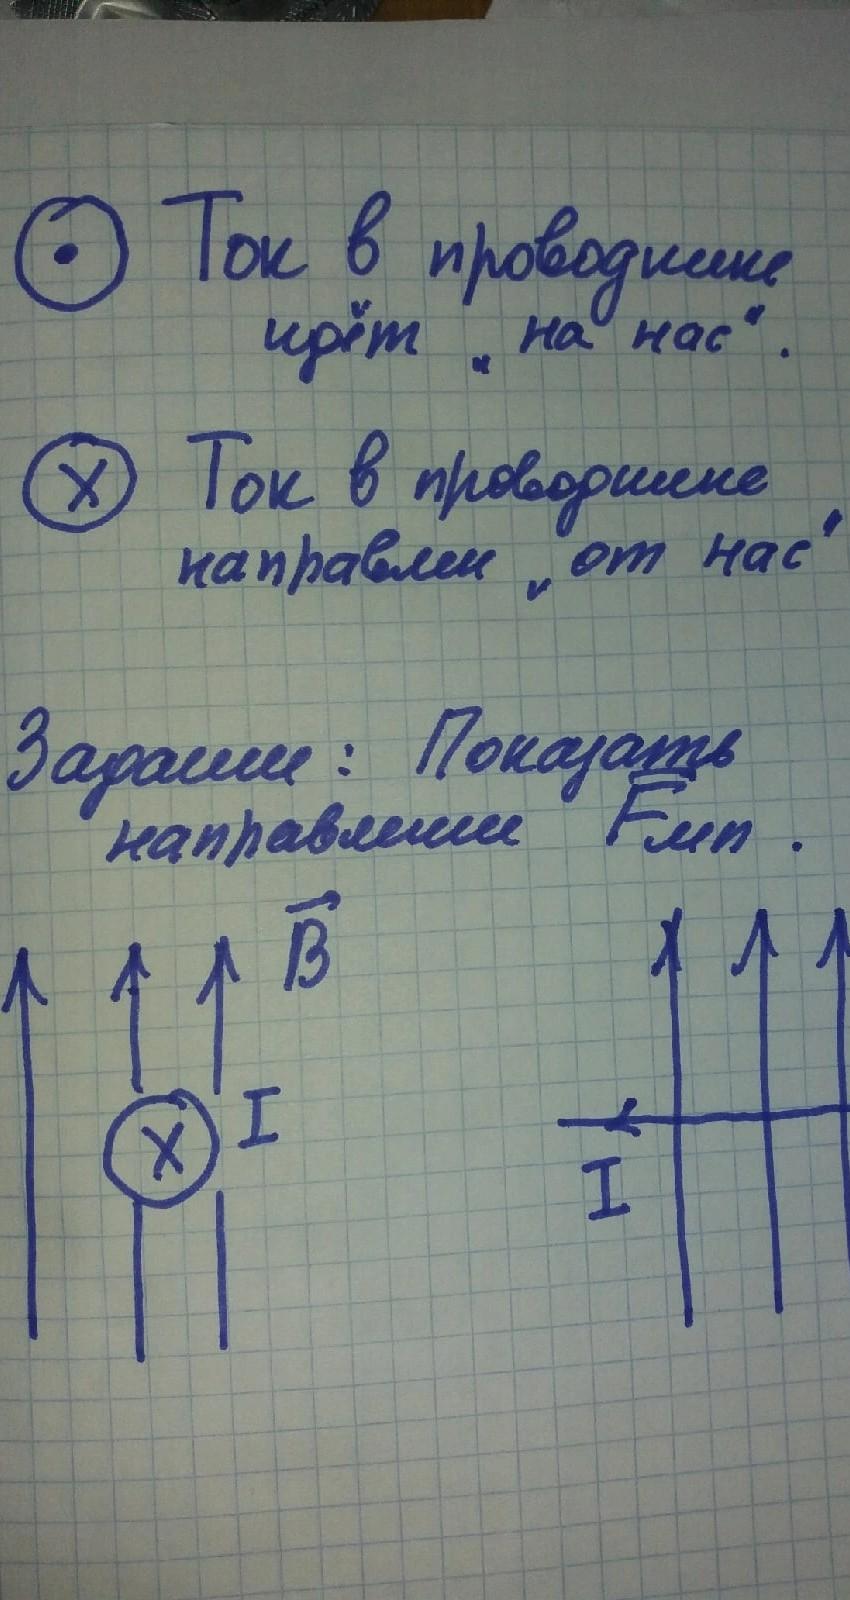 Ток в проводнике
идёт „на нас“.
Х Ток в проводнике
направлен „от нас“
Задание: Показать
направление Fмп.
B
I
Х
I